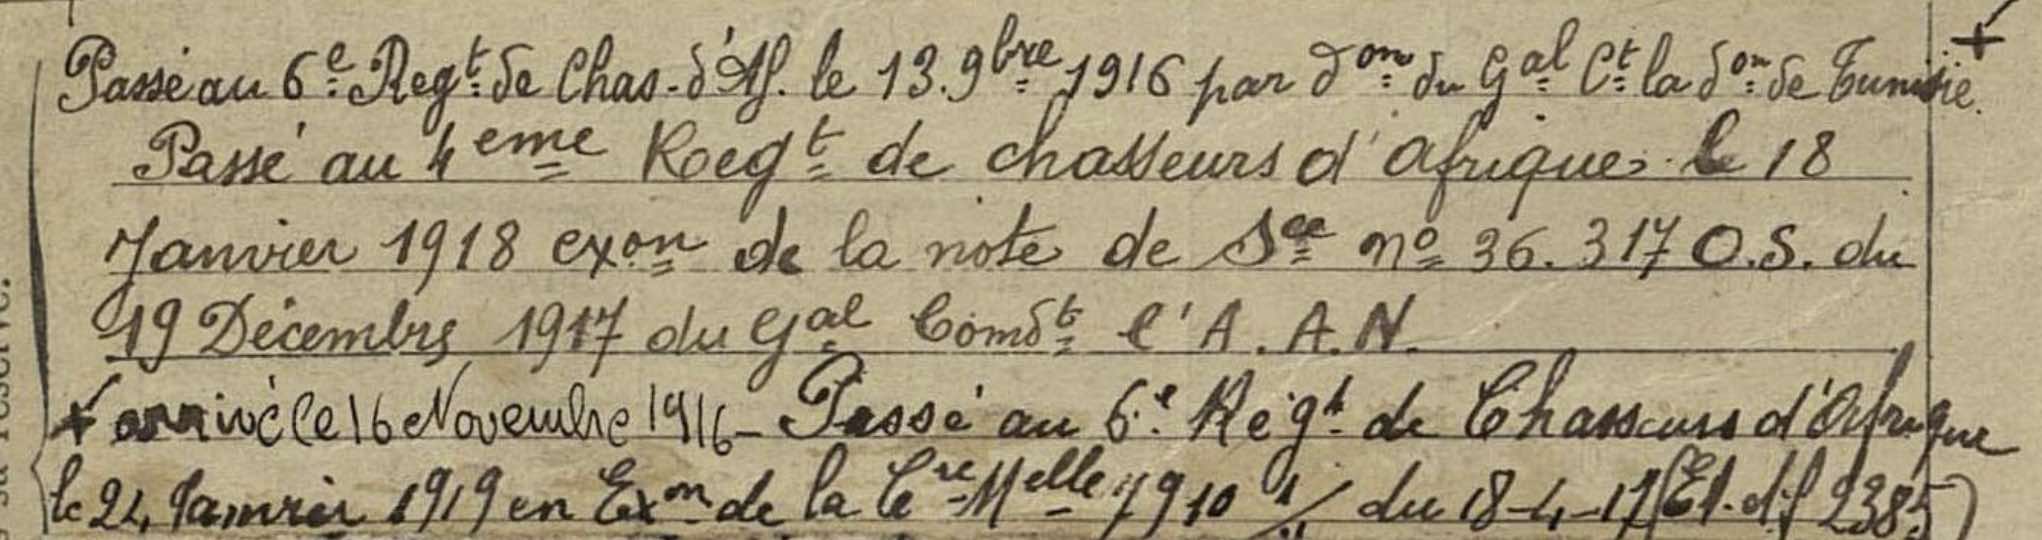 Passé au 6e Regt de Chas. d'Af. le 13. 9bre 1916 par don du Gal Ct la don de Tunisie.
Passé au 4eme Regt de chasseurs d'afrique le 18
Janvier 1918 exon de la note de Sce no 36.317 O.S. du
19 Décembre 1917 du Gal Comdt l'A.A.N.
+ arrivé le 16 Novembre 1916 - Passé au 6e Régt de Chasseurs d'Afrique
le 24 Janvier 1919 en Exon de la Cre Melle 7910 1/11 du 18-4-17 2385)